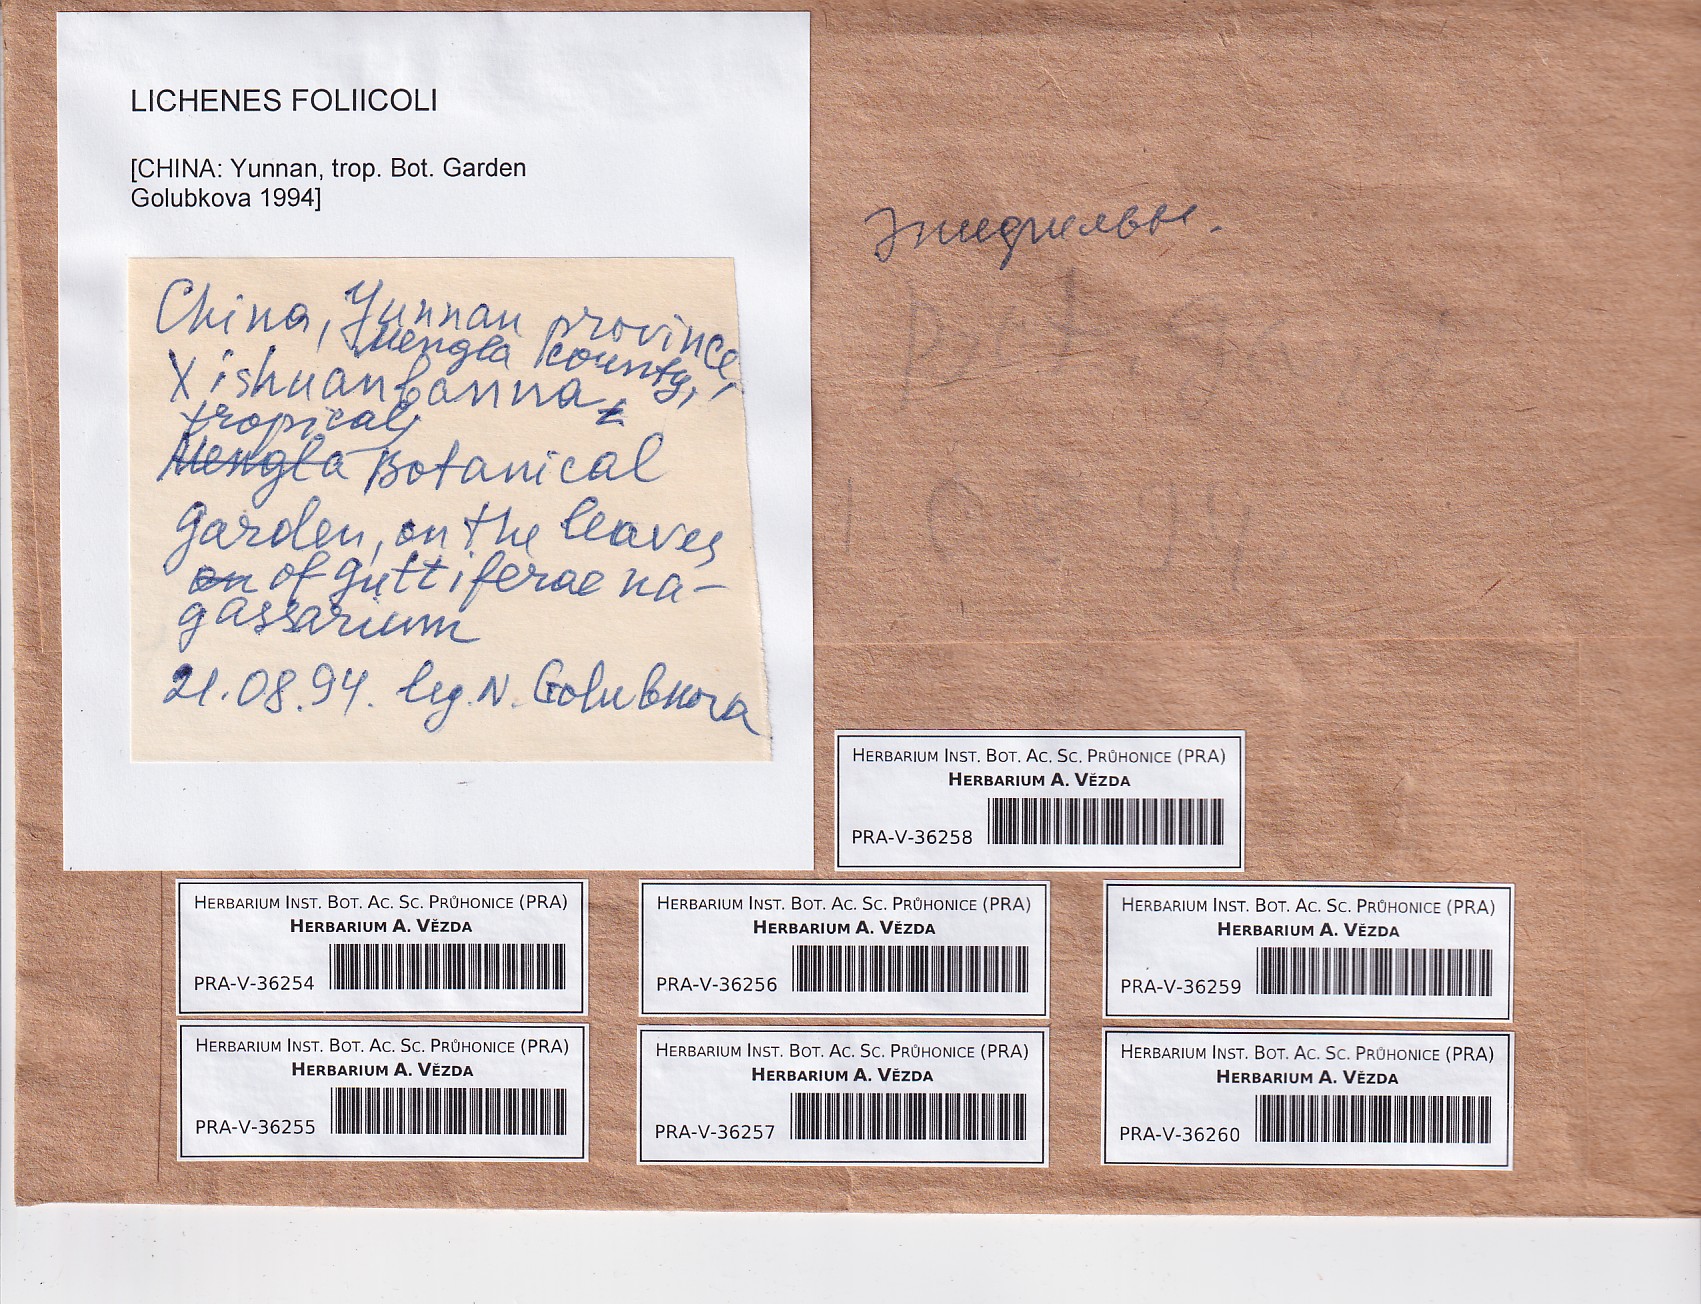 LICHENES FOLIICOLI
[CHINA: Yunnan, trop. Bot. Garden
Golubkova 1994]
China, Yunnan province,
Mengla county,
Xishuanbanna,
tropical
Mengla Botanical
garden, on the leaves
on of guttiferae na-
gassarium
21.08.94. leg. N. Golubkova
HERBARIUM INST. BOT. AC. SC. PRŮHONICE (PRA)
HERBARIUM A. VĚZDA
PRA-V-36258
HERBARIUM INST. BOT. AC. SC. PRŮHONICE (PRA)
HERBARIUM A. VĚZDA
PRA-V-36254
HERBARIUM INST. BOT. AC. SC. PRŮHONICE (PRA)
HERBARIUM A. VĚZDA
PRA-V-36256
HERBARIUM INST. BOT. AC. SC. PRŮHONICE (PRA)
HERBARIUM A. VĚZDA
PRA-V-36259
HERBARIUM INST. BOT. AC. SC. PRŮHONICE (PRA)
HERBARIUM A. VĚZDA
PRA-V-36255
HERBARIUM INST. BOT. AC. SC. PRŮHONICE (PRA)
HERBARIUM A. VĚZDA
PRA-V-36257
HERBARIUM INST. BOT. AC. SC. PRŮHONICE (PRA)
HERBARIUM A. VĚZDA
PRA-V-36260